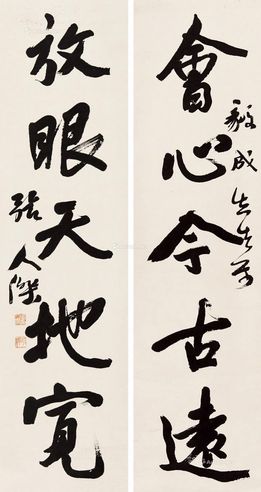 會心今古遠
毅成先生万
放眼天地寬
張人傑